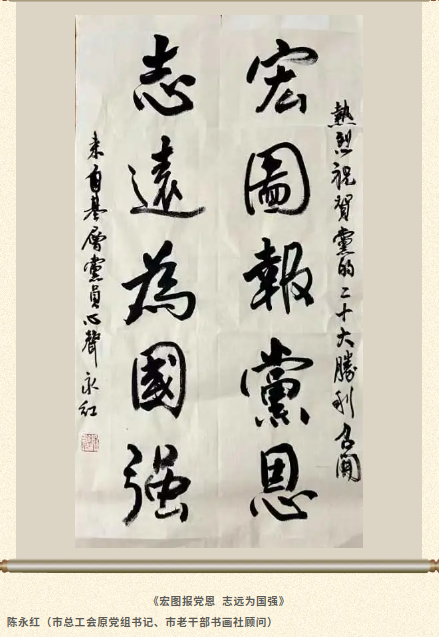 熱烈祝賀黨的二十大勝利召開
宏圖報黨恩
志遠為國强
来自基層黨員心聲 永红
《宏图报党恩 志远为国强》
陈永红（市总工会原党组书记、市老干部书画社顾问）